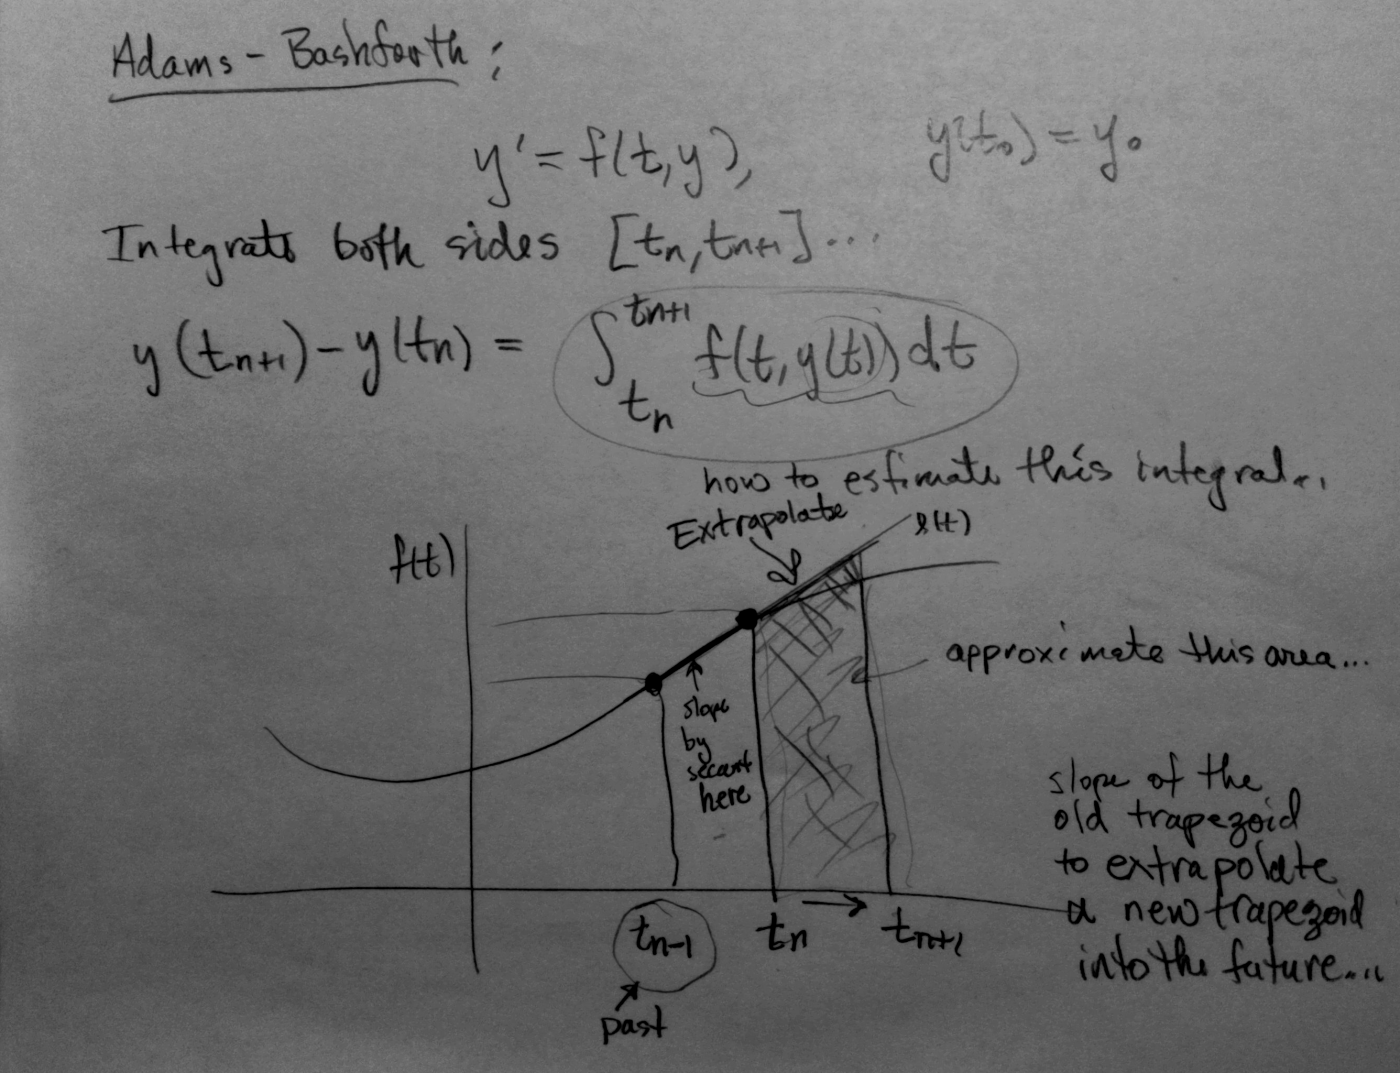 Adams - Bashforth :
y' = f(t, y), y(t₀) = y₀
Integrate both sides [tₙ, tₙ₊₁] ...
y(tₙ₊₁) - y(tₙ) = ∫ₜₙ^tₙ₊₁ f(t, y(t)) dt
how to estimate this integral...
Extrapolate
l(t)
f(t)
approximate this area...
slope
by
secant
here
slope of the
old trapezoid
to extrapolate
a new trapezoid
into the future...
tₙ₋₁ tₙ → tₙ₊₁
past